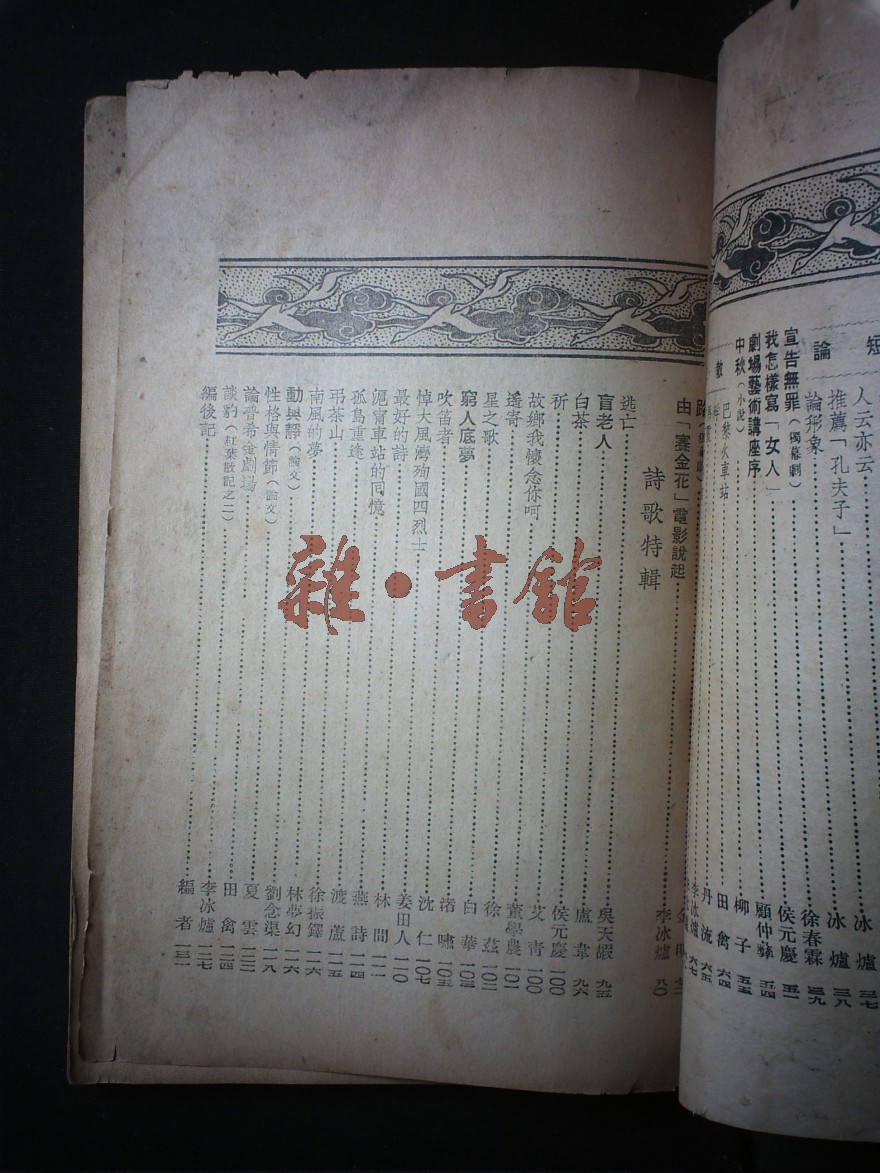 短論
人云亦云
推薦「孔夫子」 冰爐 三七
論形象 冰爐 三八
宣告無罪(獨幕劇) 徐春霖 三九
我怎樣寫「女人」 侯元慶 五一
劇場藝術講座序 顧仲彝 五四
中秋(小說) 柳子 五五
巴黎火車站 田禽 六四
丹流 六五
李冰爐 六七
由「賽金花」電影說起 李冰爐 八〇
詩歌特輯
逃亡 吳天 九五
盲老人 盧韋 九六
白茶 侯元慶 一〇〇
祈 艾青 一〇〇
故鄉我懷念你呵 董學農 一〇一
遙寄 徐茲 一〇二
星之歌 白華 一〇三
窮人底夢 渚嘯 一〇五
吹笛者 沈仁 一〇七
悼大風灣殉國四烈士 姜田人 一一〇
最好的詩 林間 一一一
滬甯車站的回憶 燕詩 一一四
孤島重逢 渡蘆 一一五
弔茶山 徐振鐸 一一六
南風的夢 林夢幻 一一六
動與靜(論文) 劉念渠 一一八
性格與情節(論文) 夏雲 一二三
論普希金劇場 田禽 一二四
談豹(紅葉散記之二) 李冰爐 一二七
編後記 編者 一三一
雜·書館